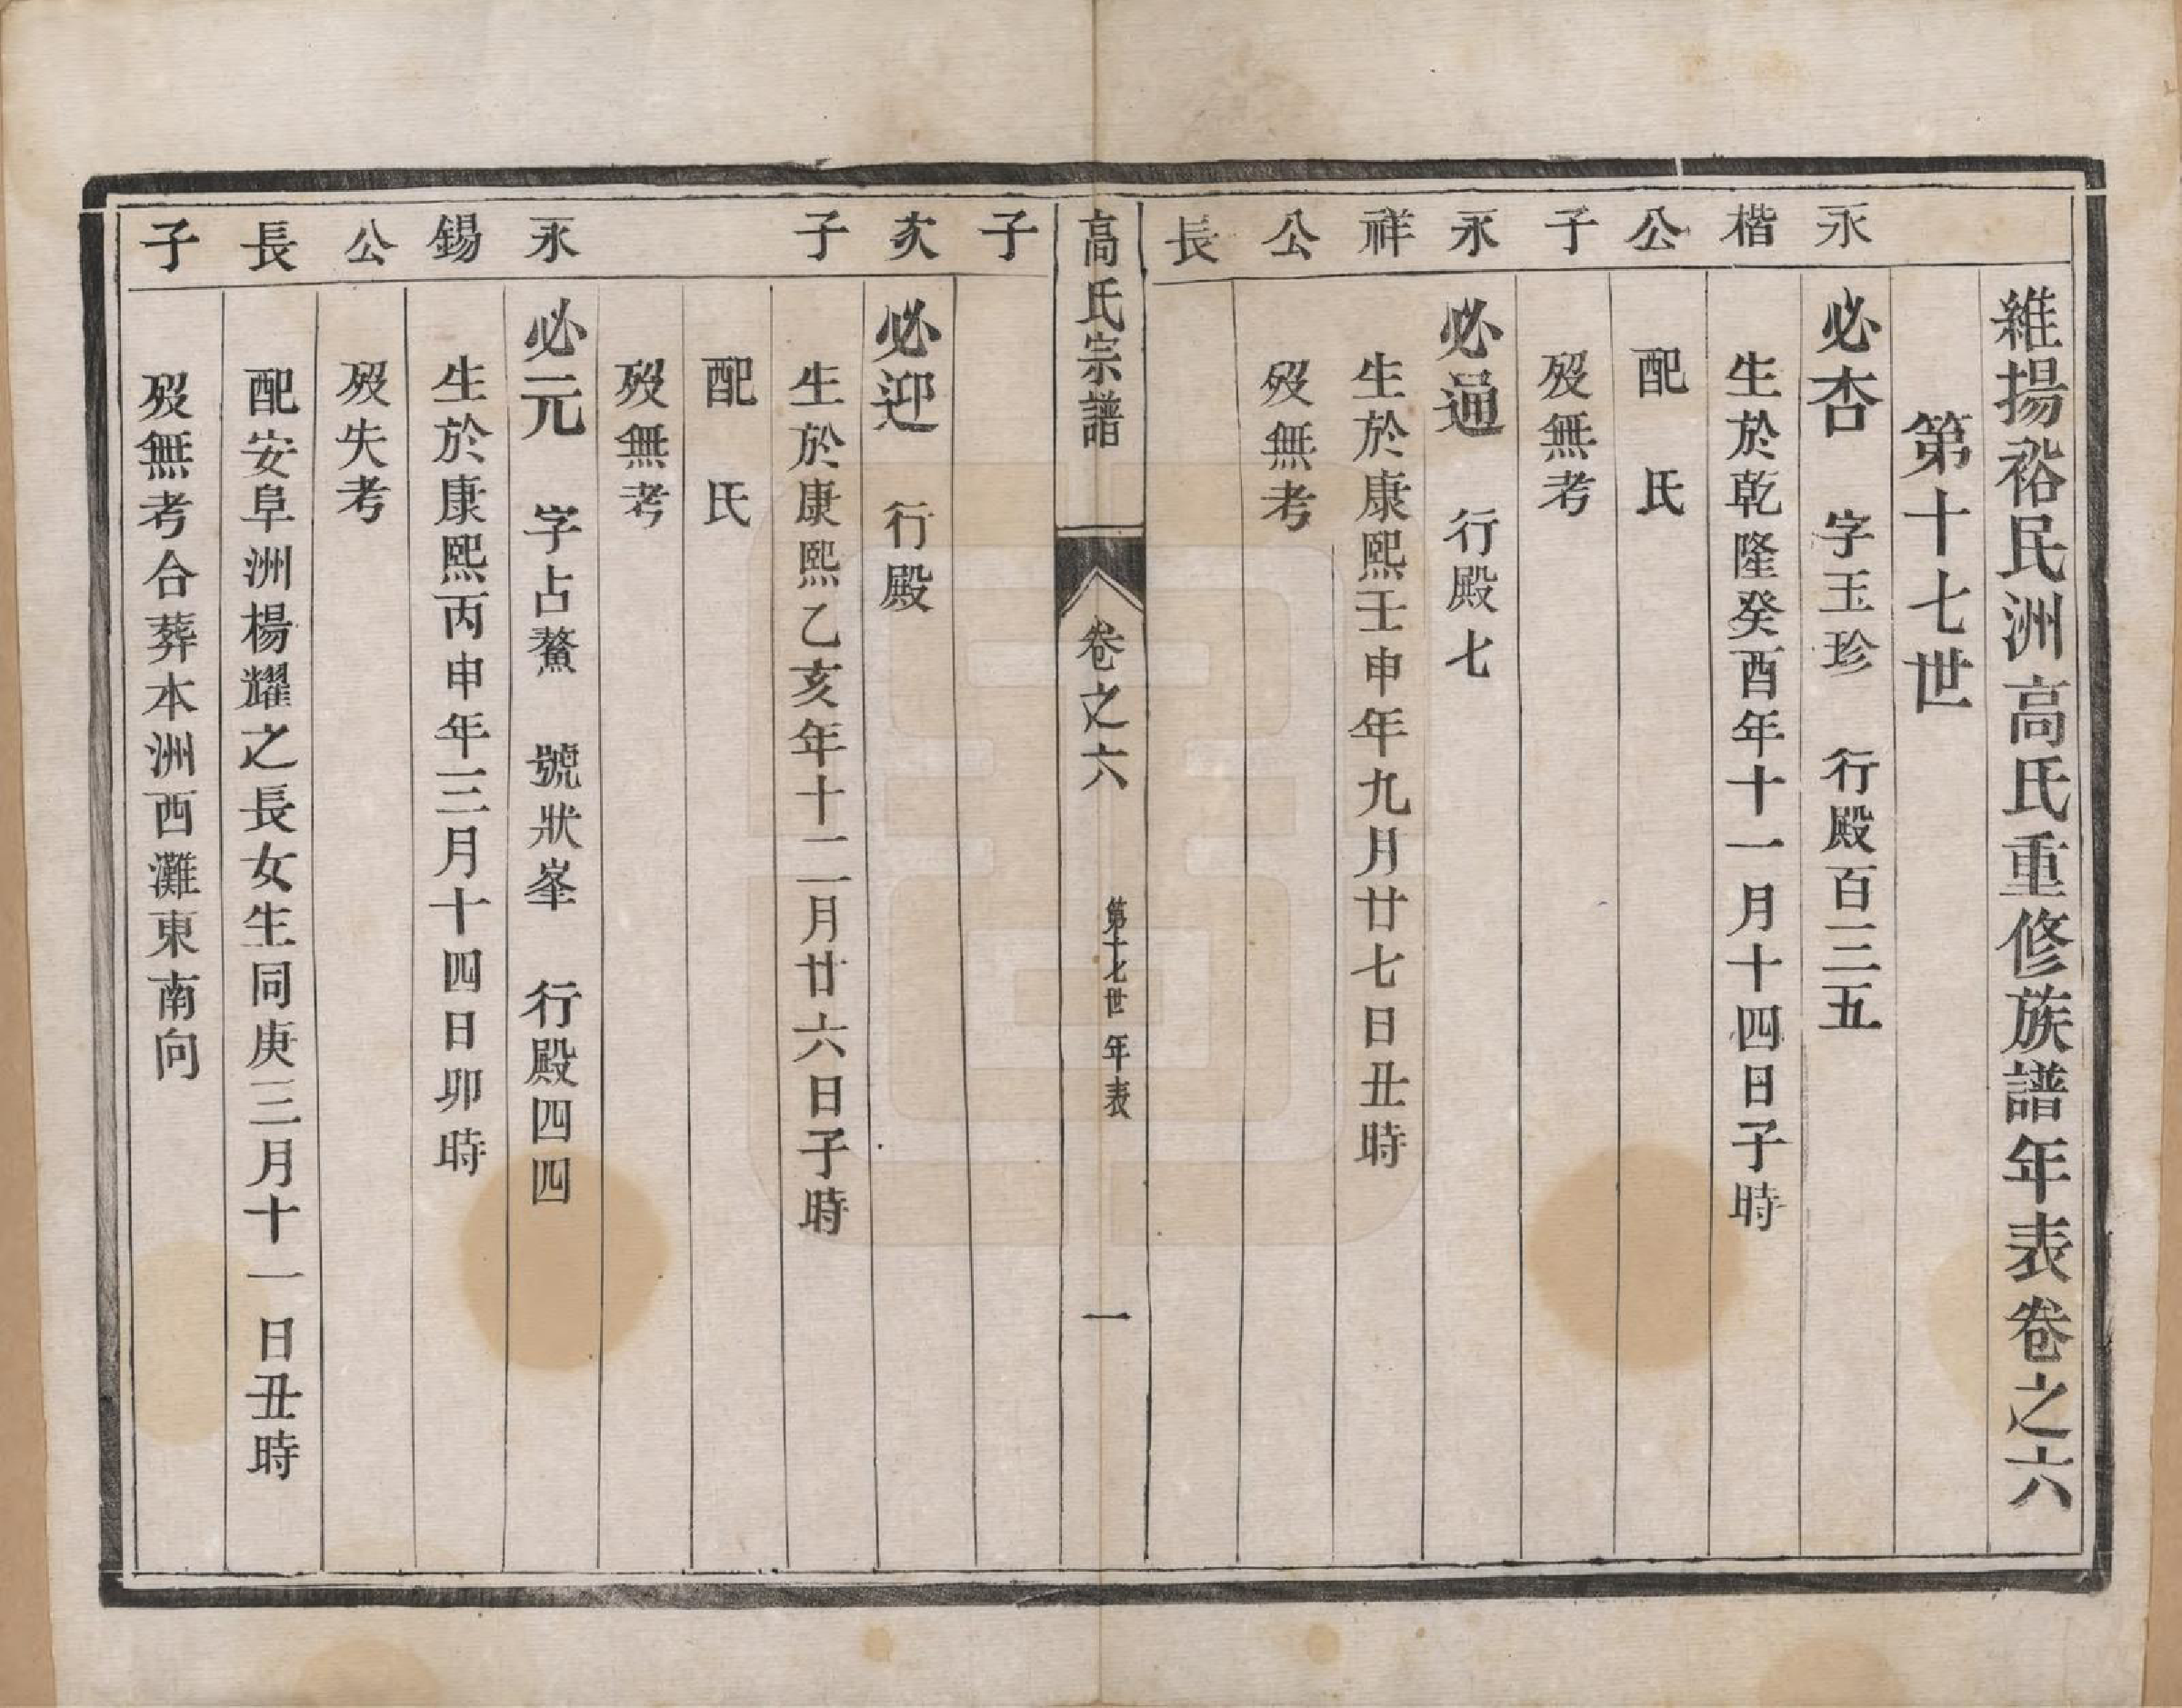 維揚裕民洲高氏重修族譜年表卷之六
第十七世
永楷公子
必杏 字玉珍 行殿百三五
生於乾隆癸酉年十一月十四日子時
配 氏
歿無考
永祥公長子
必通 行殿七
生於康熙壬申年九月廿七日丑時
歿無考
高氏宗譜 卷之六 第十七世年表 一
次子
必迎 行殿
生於康熙乙亥年十二月廿六日子時
配 氏
歿無考
永錫公長子
必元 字占鰲 號狀峯 行殿四四
生於康熙丙申年三月十四日卯時
歿失考
配安阜洲楊耀之長女生同庚三月十一日丑時
歿無考合葬本洲西灘東南向